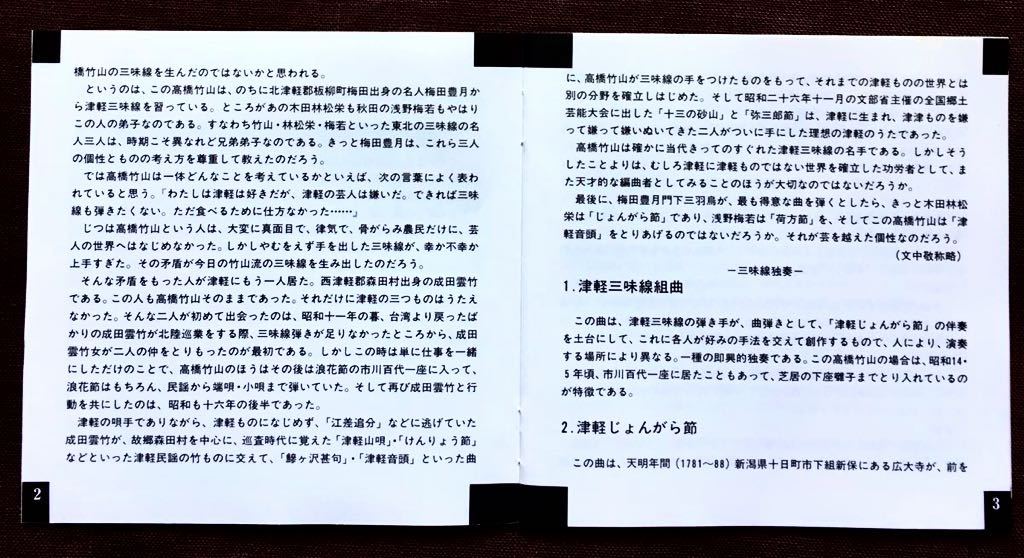 橋竹山の三味線を生んだのではないかと思われる。
というのは、この高橋竹山は、のちに北津軽郡板柳町梅田出身の名人梅田豊月か
ら津軽三味線を習っている。ところがあの木田林松栄も秋田の浅野梅若もやはり
この人の弟子なのである。すなわち竹山・林松栄・梅若といった東北の三味線の名
人三人は、時期こそ異なれど兄弟弟子なのである。きっと梅田豊月は、これら三人
の個性とものの考え方を尊重して教えたのだろう。
では高橋竹山は一体どんなことを考えているかといえば、次の言葉によく表わ
れていると思う。「わたしは津軽は好きだが、津軽の芸人は嫌いだ。できれば三味
線も弾きたくない。ただ食べるために仕方なかった……」
じつは高橋竹山という人は、大変に真面目で、律気で、骨がらみ農民だけに、芸
人の世界へはなじめなかった。しかしやむをえず手を出した三味線が、幸か不幸か
上手すぎた。その矛盾が今日の竹山流の三味線を生み出したのだろう。
そんな矛盾をもった人が津軽にもう一人居た。西津軽郡森田村出身の成田雲竹
である。この人も高橋竹山そのままであった。それだけに津軽の三つものはうたえ
なかった。そんな二人が初めて出会ったのは、昭和十一年の暮、台湾より戻ったば
かりの成田雲竹が北陸巡業をする際、三味線弾きが足りなかったところから、成田
雲竹女が二人の仲をとりもったのが最初である。しかしこの時は単に仕事を一緒
にしただけのことで、高橋竹山のほうはその後は浪花節の市川百代一座に入って、
浪花節はもちろん、民謡から端唄・小唄まで弾いていた。そして再び成田雲竹と行
動を共にしたのは、昭和も十六年の後半であった。
津軽の唄手でありながら、津軽ものになじめず、「江差追分」などに逃げていた
成田雲竹が、故郷森田村を中心に、巡査時代に覚えた「津軽山唄」・「けんりょう節」
などといった津軽民謡の竹ものに交えて、「鰺ヶ沢甚句」・「津軽音頭」といった曲
2
に、高橋竹山が三味線の手をつけたものをもって、それまでの津軽ものの世界とは
別の分野を確立しはじめた。そして昭和二十六年十一月の文部省主催の全国郷土
芸能大会に出した「十三の砂山」と「弥三郎節」は、津軽に生まれ、津津ものを嫌
って嫌って嫌いぬいてきた二人がついに手にした理想の津軽のうたであった。
高橋竹山は確かに当代きってのすぐれた津軽三味線の名手である。しかしそう
したことよりは、むしろ津軽に津軽ものではない世界を確立した功労者として、ま
た天才的な編曲者としてみることのほうが大切なのではないだろうか。
最後に、梅田豊月門下三羽烏が、最も得意な曲を弾くとしたら、きっと木田林松
栄は「じょんがら節」であり、浅野梅若は「荷方節」を、そしてこの高橋竹山は「津
軽音頭」をとりあげるのではないだろうか。それが芸を越えた個性なのだろう。
(文中敬称略)
－三味線独奏－
1.津軽三味線組曲
この曲は、津軽三味線の弾き手が、曲弾きとして、「津軽じょんがら節」の伴奏
を土台にして、これに各人が好みの手法を交えて創作するもので、人により、演奏
する場所により異なる。一種の即興的独奏である。この高橋竹山の場合は、昭和14・
5年頃、市川百代一座に居たこともあって、芝居の下座囃子までとり入れているの
が特徴である。
2.津軽じょんがら節
この曲は、天明年間(1781～88)新潟県十日町市下組新保にある広大寺が、前を
3